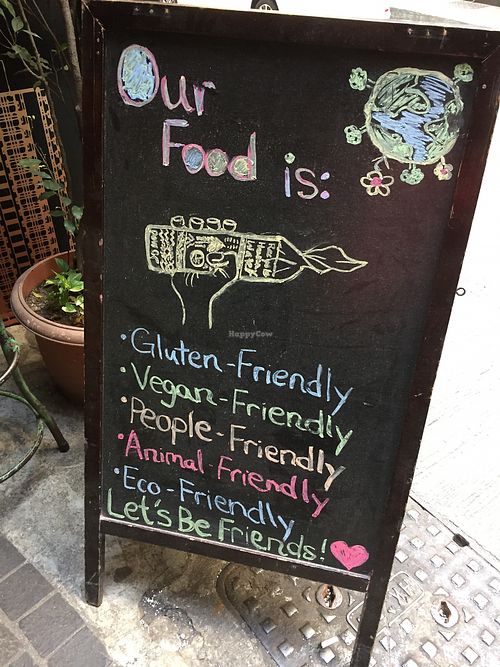 Our
Food is:
HappyCow
•Gluten-Friendly
•Vegan-Friendly
•People-Friendly
•Animal-Friendly
•Eco-Friendly
Let's Be Friends!